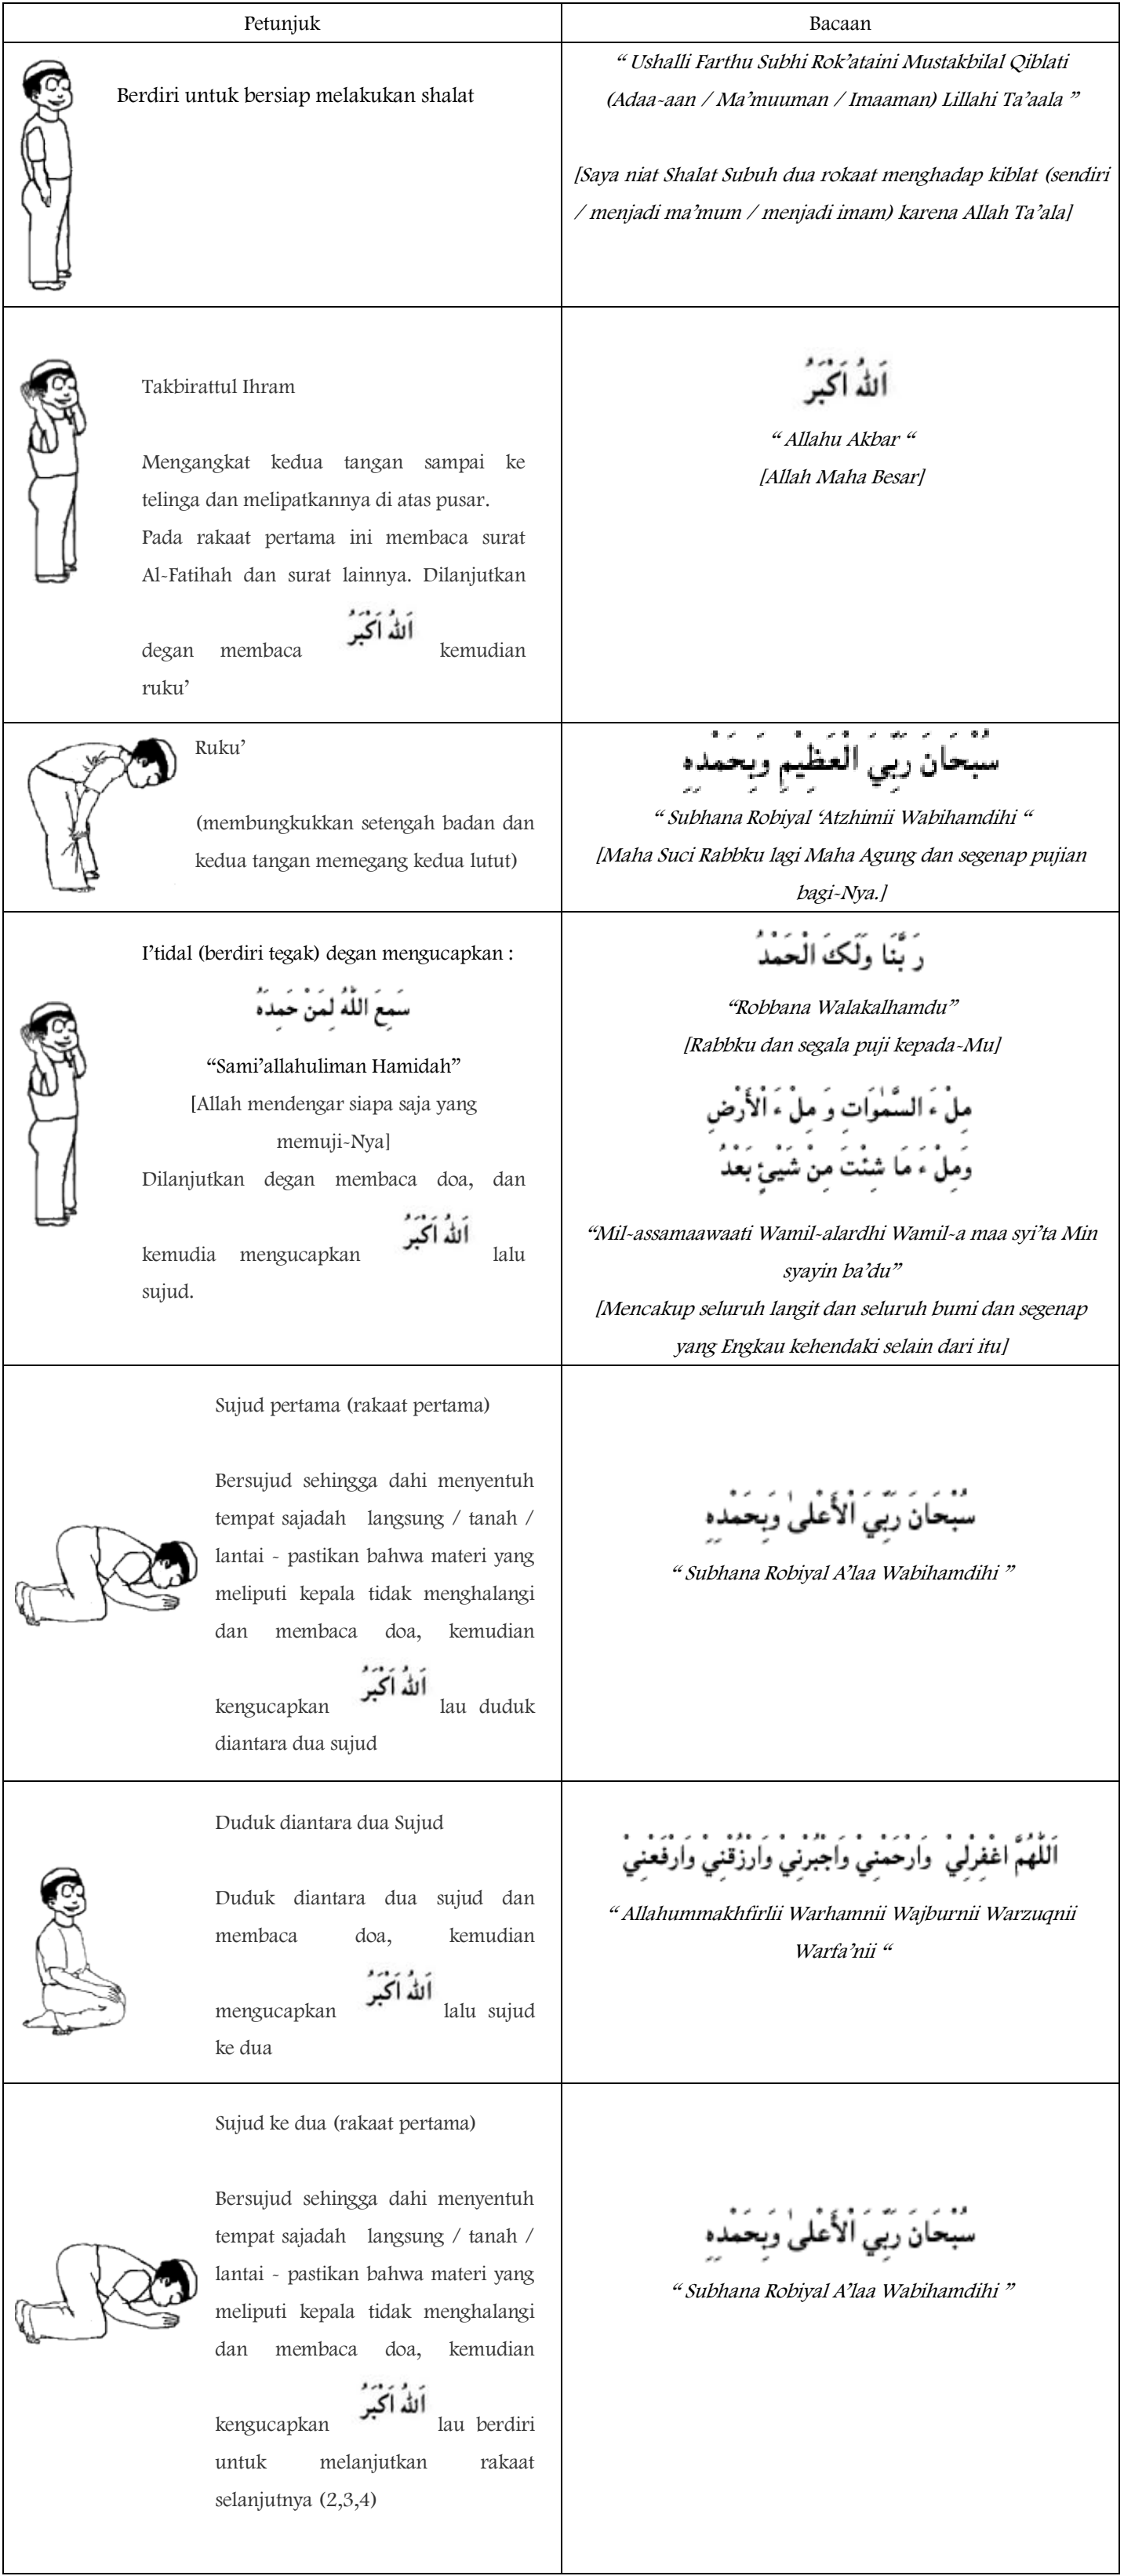 Petunjuk
Bacaan
Berdiri untuk bersiap melakukan shalat
“ Ushalli Farthu Subhi Rok’ataini Mustakbilal Qiblati
(Adaa-aan / Ma’muuman / Imaaman) Lillahi Ta’aala ”
[Saya niat Shalat Subuh dua rokaat menghadap kiblat (sendiri
/ menjadi ma’mum / menjadi imam) karena Allah Ta’ala]
Takbirattul Ihram
Mengangkat kedua tangan sampai ke
telinga dan melipatkannya di atas pusar.
Pada rakaat pertama ini membaca surat
Al-Fatihah dan surat lainnya. Dilanjutkan
degan membaca اَللهُ اَكْبَرُ kemudian
ruku’
اَللهُ اَكْبَرُ
“ Allahu Akbar “
[Allah Maha Besar]
Ruku’
(membungkukkan setengah badan dan
kedua tangan memegang kedua lutut)
سُبْحَانَ رَبِّيَ الْعَظِيْمِ وَبِحَمْدِهِ
“ Subhana Robiyal ‘Atzhimii Wabihamdihi “
[Maha Suci Rabbku lagi Maha Agung dan segenap pujian
bagi-Nya.]
I’tidal (berdiri tegak) degan mengucapkan :
سَمِعَ اللهُ لِمَنْ حَمِدَهُ
“Sami’allahuliman Hamidah”
[Allah mendengar siapa saja yang
memuji-Nya]
Dilanjutkan degan membaca doa, dan
kemudia mengucapkan اَللهُ اَكْبَرُ lalu
sujud.
رَبَّنَا وَلَكَ الْحَمْدُ
“Robbana Walakalhamdu”
[Rabbku dan segala puji kepada-Mu]
مِلْءَ السَّمٰوَاتِ وَ مِلْءَ الْأَرْضِ
وَمِلْءَ مَا شِئْتَ مِنْ شَيْئٍ بَعْدُ
“Mil-assamaawaati Wamil-alardhi Wamil-a maa syi’ta Min
syayin ba’du”
[Mencakup seluruh langit dan seluruh bumi dan segenap
yang Engkau kehendaki selain dari itu]
Sujud pertama (rakaat pertama)
Bersujud sehingga dahi menyentuh
tempat sajadah langsung / tanah /
lantai - pastikan bahwa materi yang
meliputi kepala tidak menghalangi
dan membaca doa, kemudian
kengucapkan اَللهُ اَكْبَرُ lau duduk
diantara dua sujud
سُبْحَانَ رَبِّيَ الْأَعْلىٰ وَبِحَمْدِهِ
“ Subhana Robiyal A’laa Wabihamdihi ”
Duduk diantara dua Sujud
Duduk diantara dua sujud dan
membaca doa, kemudian
mengucapkan اَللهُ اَكْبَرُ lalu sujud
ke dua
اَللّٰهُمَّ اغْفِرْلِيْ وَارْحَمْنِيْ وَاجْبُرْنِيْ وَارْزُقْنِيْ وَارْفَعْنِيْ
“ Allahummakhfirlii Warhamnii Wajburnii Warzuqnii
Warfa’nii “
Sujud ke dua (rakaat pertama)
Bersujud sehingga dahi menyentuh
tempat sajadah langsung / tanah /
lantai - pastikan bahwa materi yang
meliputi kepala tidak menghalangi
dan membaca doa, kemudian
kengucapkan اَللهُ اَكْبَرُ lau berdiri
untuk melanjutkan rakaat
selanjutnya (2,3,4)
سُبْحَانَ رَبِّيَ الْأَعْلىٰ وَبِحَمْدِهِ
“ Subhana Robiyal A’laa Wabihamdihi ”